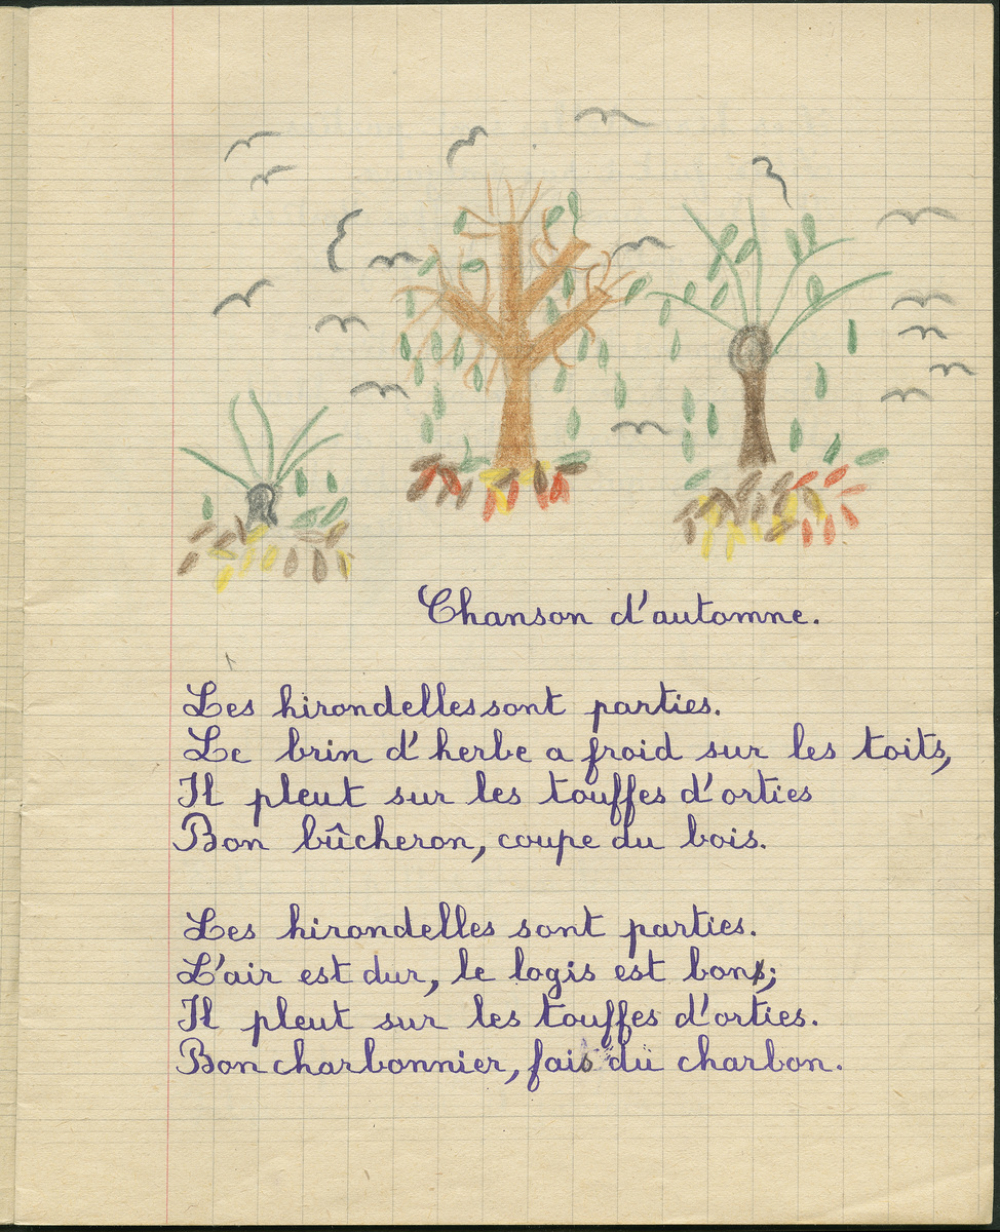 Chanson d'automne.
Les hirondelles sont parties.
Le brin d'herbe a froid sur les toits,
Il pleut sur les touffes d'orties
Bon bûcheron, coupe du bois.
Les hirondelles sont parties.
L'air est dur, le logis est bon;
Il pleut sur les touffes d'orties.
Bon charbonnier, fais du charbon.